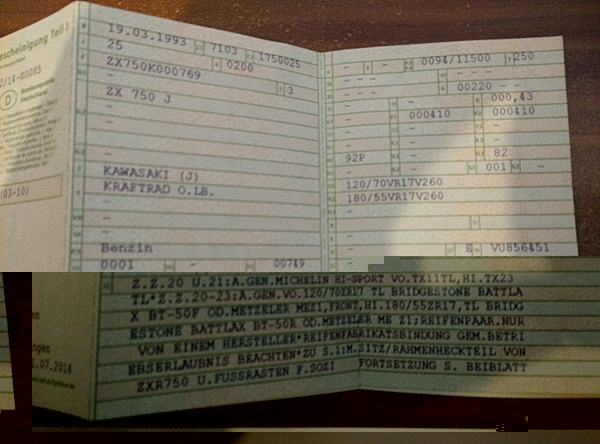 escheinigung Teil I
2/14-00085
D
Bundesrepublik
Deutschland
(03-10)
19.03.1993 7103 1750025
25 0200
ZX750K000769
3
ZX 750 J
KAWASAKI (J)
KRAFTRAD O.LB.
Benzin
0001 00749
0094/11500 250
00220
000,43
000410 000410
92P 82
001
120/70VR17V260
180/55VR17V260
E VU856451
ogen
.07.2014
Z.Z.20 U.21:A.GEN.MICHELIN HI-SPORT VO.TX11TL,HI.TX23
TL*Z.Z.20-23:A.GEN.VO.120/70ZR17 TL BRIDGESTONE BATTLA
X BT-50F OD.METZELER MEZ1,FRONT,HI.180/55ZR17,TL BRIDG
ESTONE BATTLAX BT-50R OD.METZELER ME Z1;REIFENPAAR.NUR
VON EINEM HERSTELLER*REIFENFABRIKATSBINDUNG GEM.BETRI
EBSERLAUBNIS BEACHTEN*ZU S.1:M.SITZ/RAHMENHECKTEIL VON
ZXR750 U.FUSSRASTEN F.SOZI FORTSETZUNG S. BEIBLATT